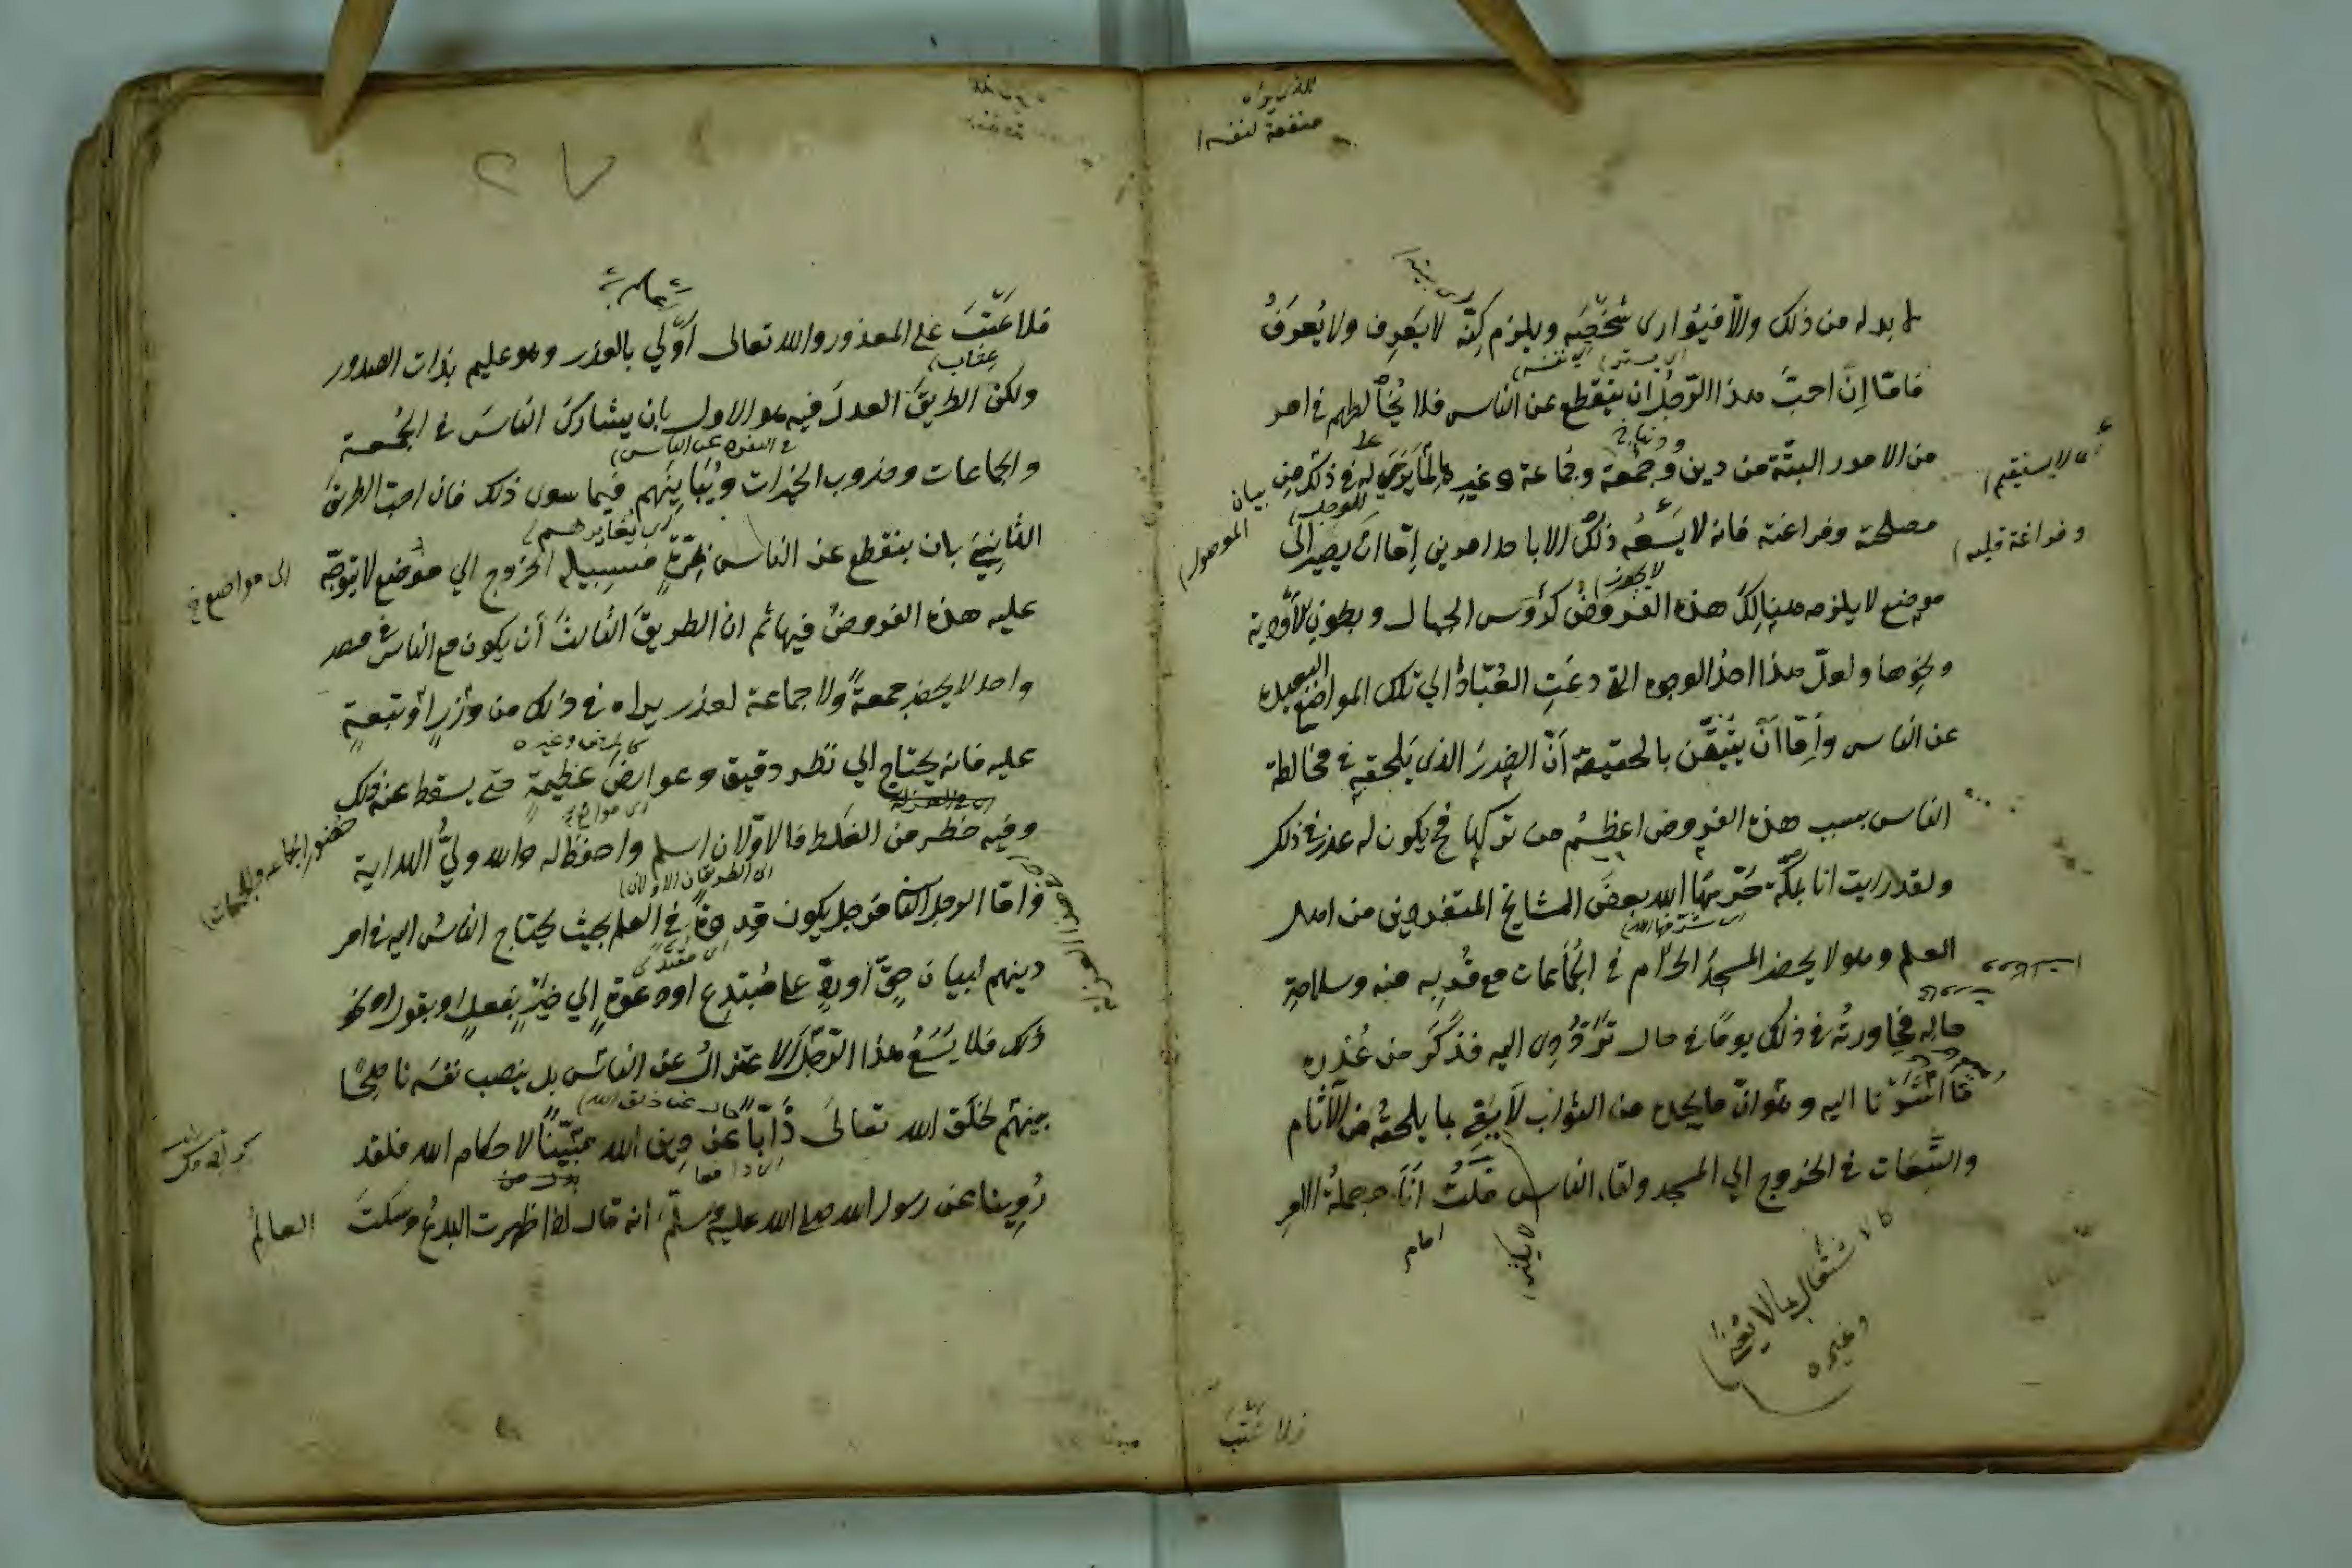 لا بد له من ذلك والا فيواري شخصه ويلزم كنه لا يعرف ولا يعرف
فاما ان احب هذا الرجل ان ينقطع عن الناس فلا يخالطهم في امر
من الامور البتة من دين وجمعة وجماعة وغيرها لما يرى له في ذلك من
مصلحة وفراغته فانه لا يسعه ذلك الا باحد امرين اما ان يصير الى
موضع لا يلزمه هنالك هذه الفروض كرؤس الجبال وبطون الاودية
ونحوها ولعل هذا احد الوجوه التي دعت العباد الي تلك المواضع البعيدة
عن الناس واما ان يتيقن بالحقيقة أن الضرر الذي يلحقه في مخالطة
الناس بسبب هذه الفروض اعظم من تركها فح يكون له عذر في ذلك
ولقد رايت انا بمكة حرسها الله بعض المشايخ المتفردين من اهل
العلم وهو لا يحضر المسجد الحرام في الجماعات مع قربه منه وسلامة
حاله فحاورته في ذلك يوما في حال ترددي اليه فذكر من عذره
ما اشرنا اليه وهو ان ما يجده من الثواب لا يفي بما يلحقه من الآثام
والتبعات في الخروج الي المسجد ولقاء الناس قلت أنا وجملة الامر
منفعة لنفسه
أي لا يستقيم
وفراغة قلبه
بيان
الموصول
لا يجوز
امام
كالاشتغال بما لا يعني
وغيره
فلا عتب
فلا عتب علي المعذور والله تعالى أولي بالعذر وهو عليم بذات الصدور
ولكن الطريق العدل فيه هو الاول بان يشارك الناس في الجمعة
والجماعات وضروب الخيرات ويباينهم فيما سوي ذلك فان احب الطريق
الثاني بان ينقطع عن الناس بمرة فسبيله الخروج الي موضع لا يتوجه
عليه هذه الفروض فيها ثم ان الطريق الثالث أن يكون مع الناس في مصر
واحد لا يحضر جمعة ولا جماعة لعذر يراه في ذلك من وزر او تبعة
عليه فانه يحتاج الي نظر دقيق وعوارض عظيمة حتي يسقط عنه ذلك
وفيه خطر من الغلط فالاولان اسلم واحفظ له والله ولي الهداية
واما الرجل الثاني فرجل يكون قدوة في العلم بحيث يحتاج الناس اليه في امر
دينهم لبيان حق أو رد علي مبتدع او دعوة إلي خير بفعل او بقول او نحو
ذلك فلا يسع هذا الرجل الاعتزال عن الناس بل ينصب نفسه ناصحا
بينهم لخلق الله تعالى ذابا عن دين الله مبينا لاحكام الله فلقد
روينا عن رسول الله صلي الله عليه وسلم انه قال اذا ظهرت البدع وسكت العالم
عتاب
في التفرد عن الناس
اي يغايرهم
الى مواضع
كالمرض وغيره
حضور الجماعة والجمعات
اى الطريقان الاولان
اى مقتدى
اى دافعا